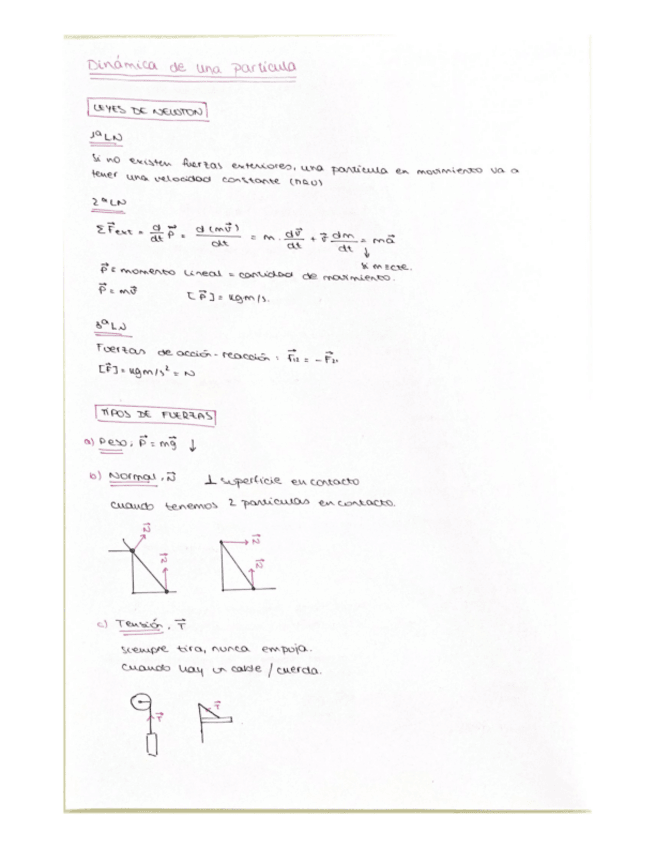 Dinámica de una partícula
LEYES DE NEWTON
1ª LN
Si no existen fuerzas exteriores, una partícula en movimiento va a
tener una velocidad constante (MRU)
2ª LN
ΣF⃗ext = d/dt P⃗ = d(mv⃗)/dt = m · dv⃗/dt + v⃗ dm/dt = ma⃗
↓
si m=cte.
P⃗ = momento lineal = cantidad de movimiento.
P⃗ = mv⃗ [P⃗] = kgm/s.
3ª LN
Fuerzas de acción-reacción: F⃗12 = -F⃗21
[F⃗] = kgm/s² = N
TIPOS DE FUERZAS
a) Peso, P⃗ = mg⃗ ↓
b) Normal, N⃗ ⊥ superficie en contacto
cuando tenemos 2 partículas en contacto.
N⃗ N⃗
N⃗ N⃗
c) Tensión, T⃗
siempre tira, nunca empuja.
cuando hay un cable / cuerda.
T⃗ T⃗